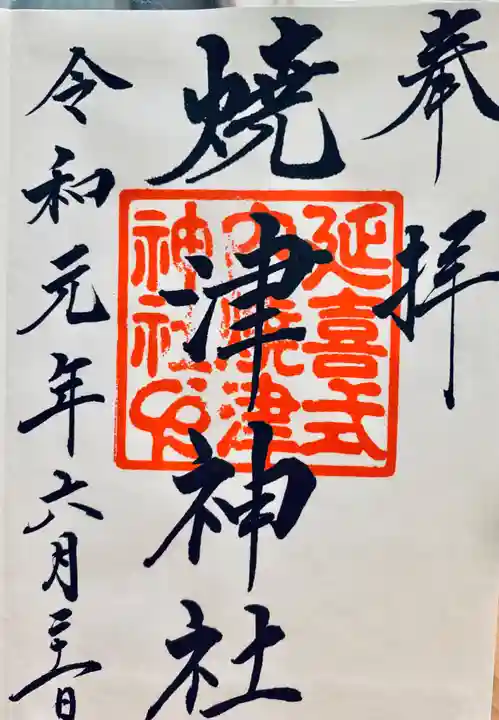 奉拝
焼津神社
延喜式
内焼津
神社印
令和元年六月二十一日